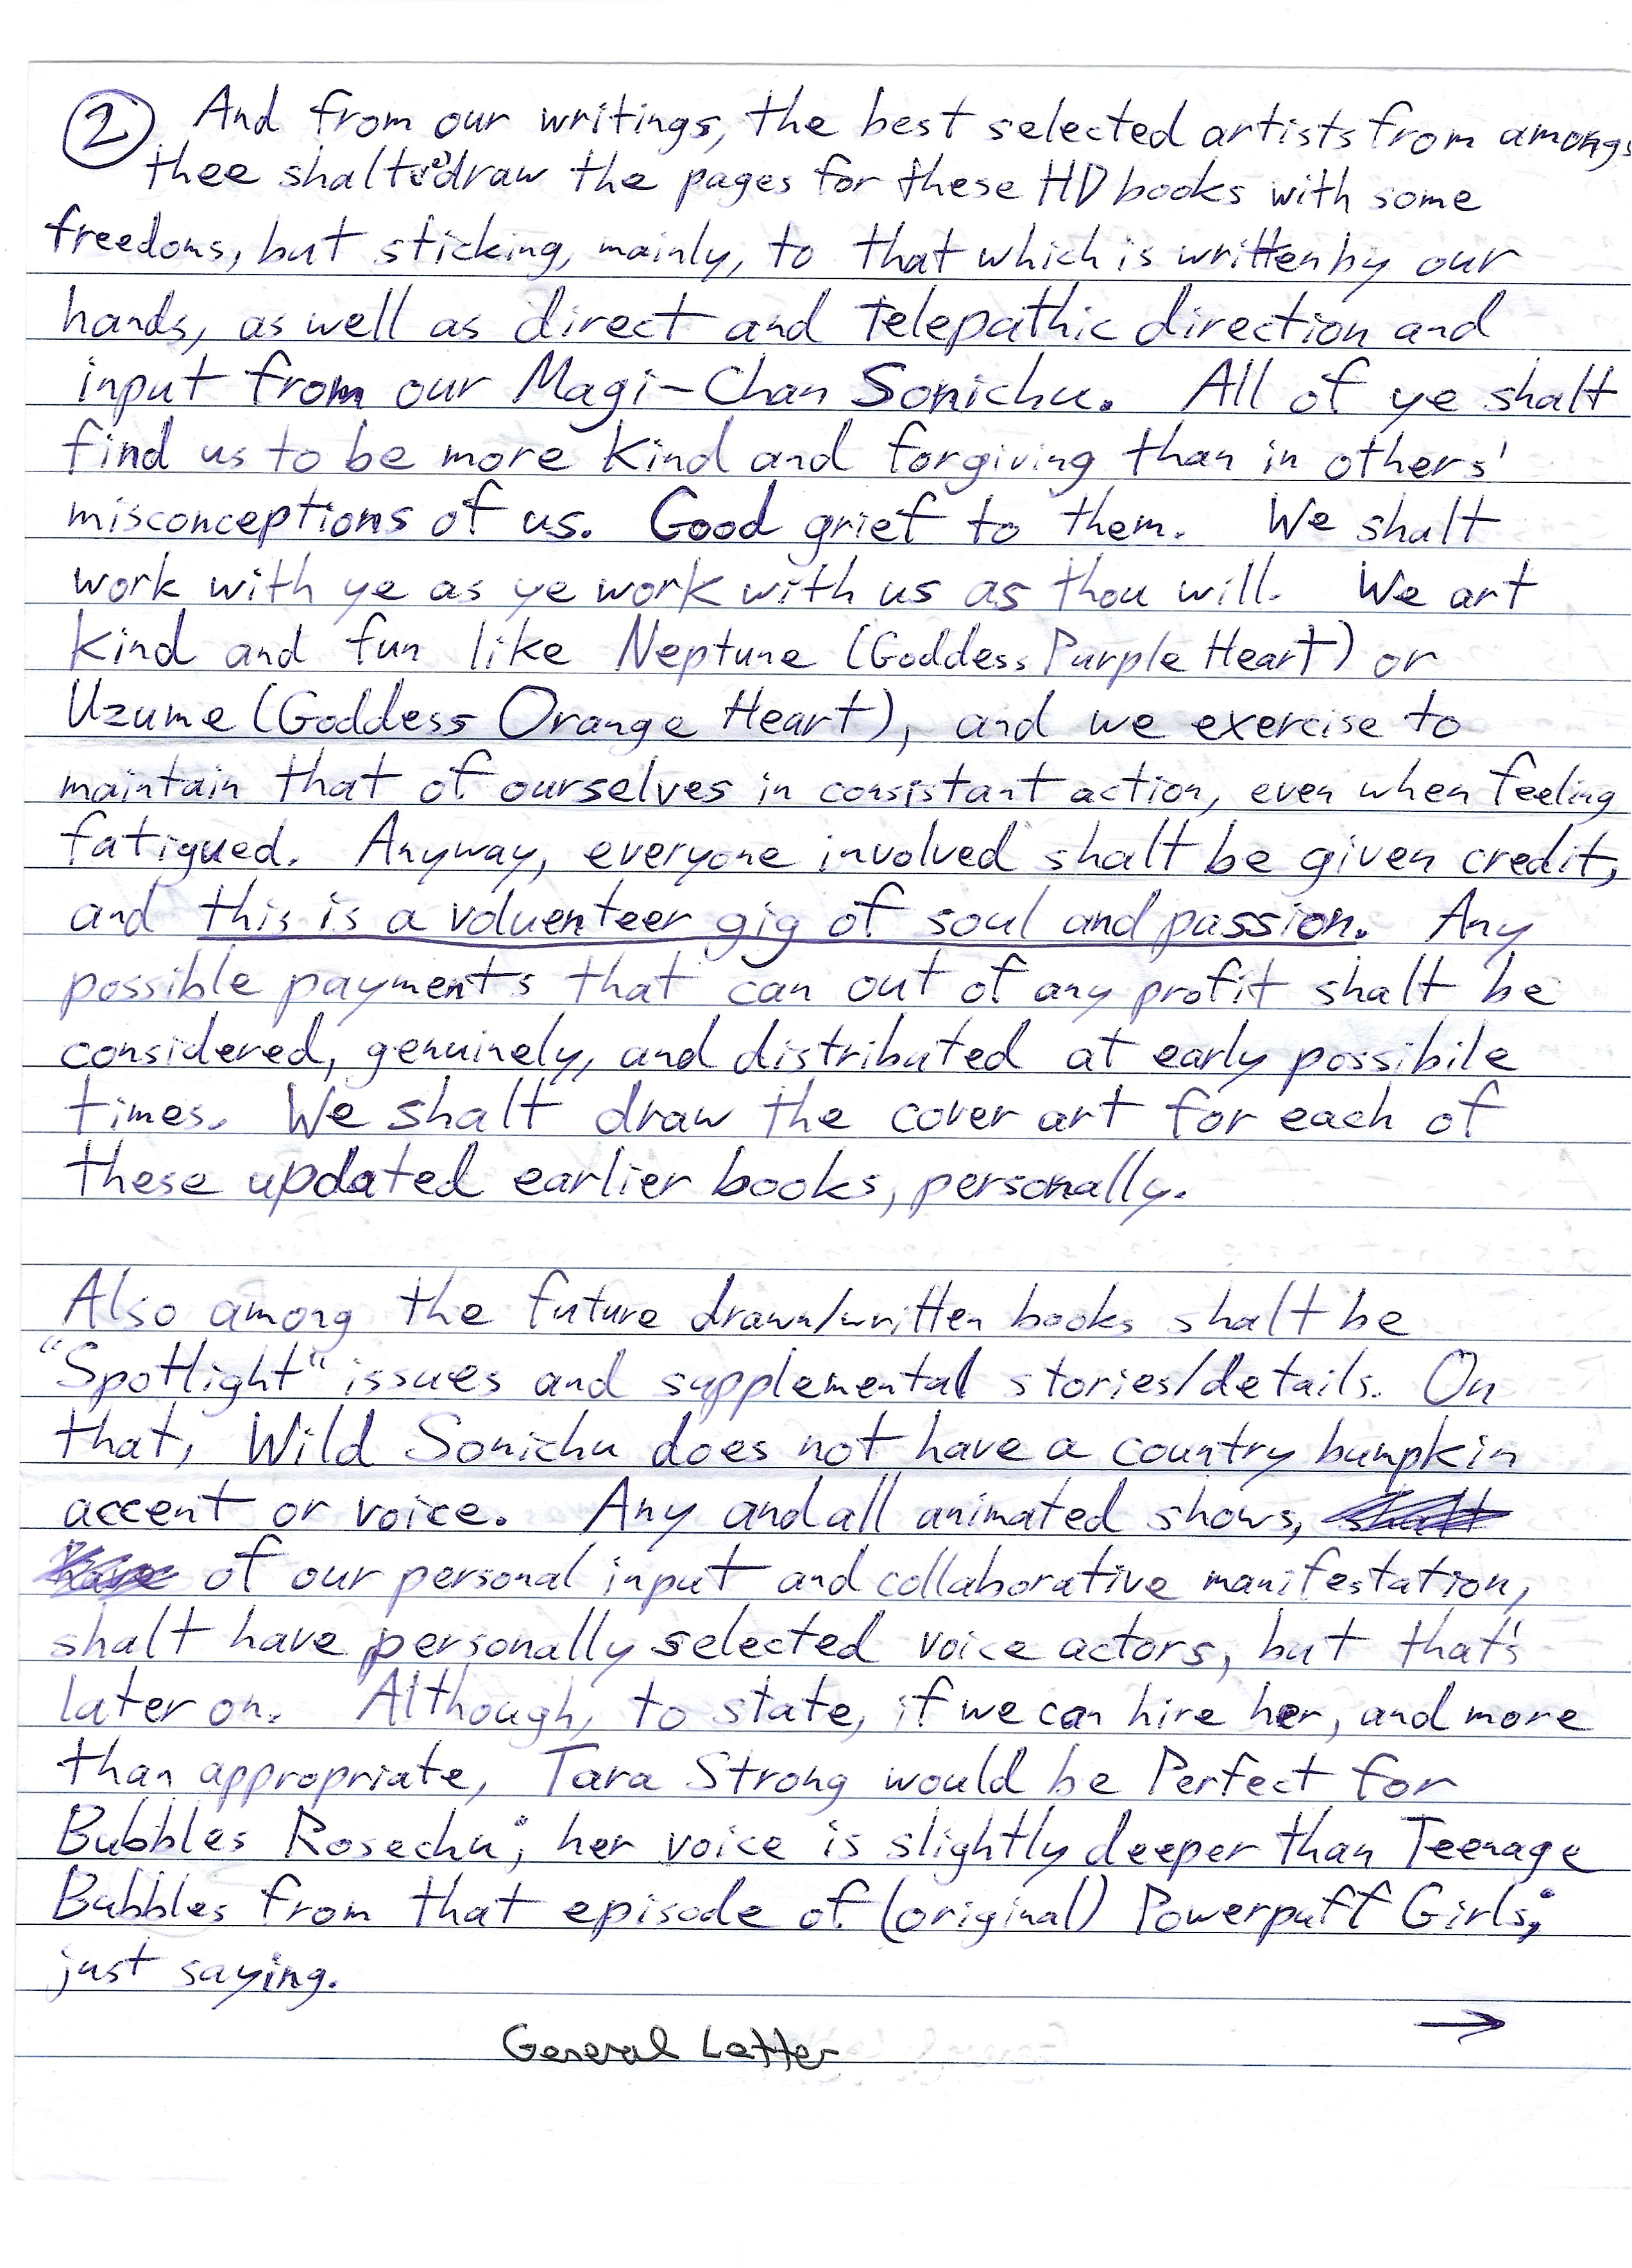 ② And from our writings, the best selected artists from amongs
thee shalt redraw the pages for these HD books with some
freedoms, but sticking, mainly, to that which is written by our
hands, as well as direct and telepathic direction and
input from our Magi-Chan Sonichu. All of ye shalt
find us to be more kind and forgiving than in others'
misconceptions of us. Good grief to them. We shalt
work with ye as ye work with us as thou will. We art
kind and fun like Neptune (Goddess Purple Heart) or
Uzume (Goddess Orange Heart), and we exercise to
maintain that of ourselves in consistant action, even when feeling
fatigued. Anyway, everyone involved shalt be given credit,
and this is a voluenteer gig of soul and passion. Any
possible payments that can out of any profit shalt be
considered, genuinely, and distributed at early possibile
times. We shalt draw the cover art for each of
these updated earlier books, personally.
Also among the future drawn/written books shalt be
"Spotlight" issues and supplemental stories/details. On
that, Wild Sonichu does not have a country bumpkin
accent or voice. Any and all animated shows, shalt
have of our personal input and collaborative manifestation,
shalt have personally selected voice actors, but that's
later on. Although, to state, if we can hire her, and more
than appropriate, Tara Strong would be Perfect for
Bubbles Rosechu; her voice is slightly deeper than Teenage
Bubbles from that episode of (original) Powerpuff Girls;
just saying.
→
General Letter